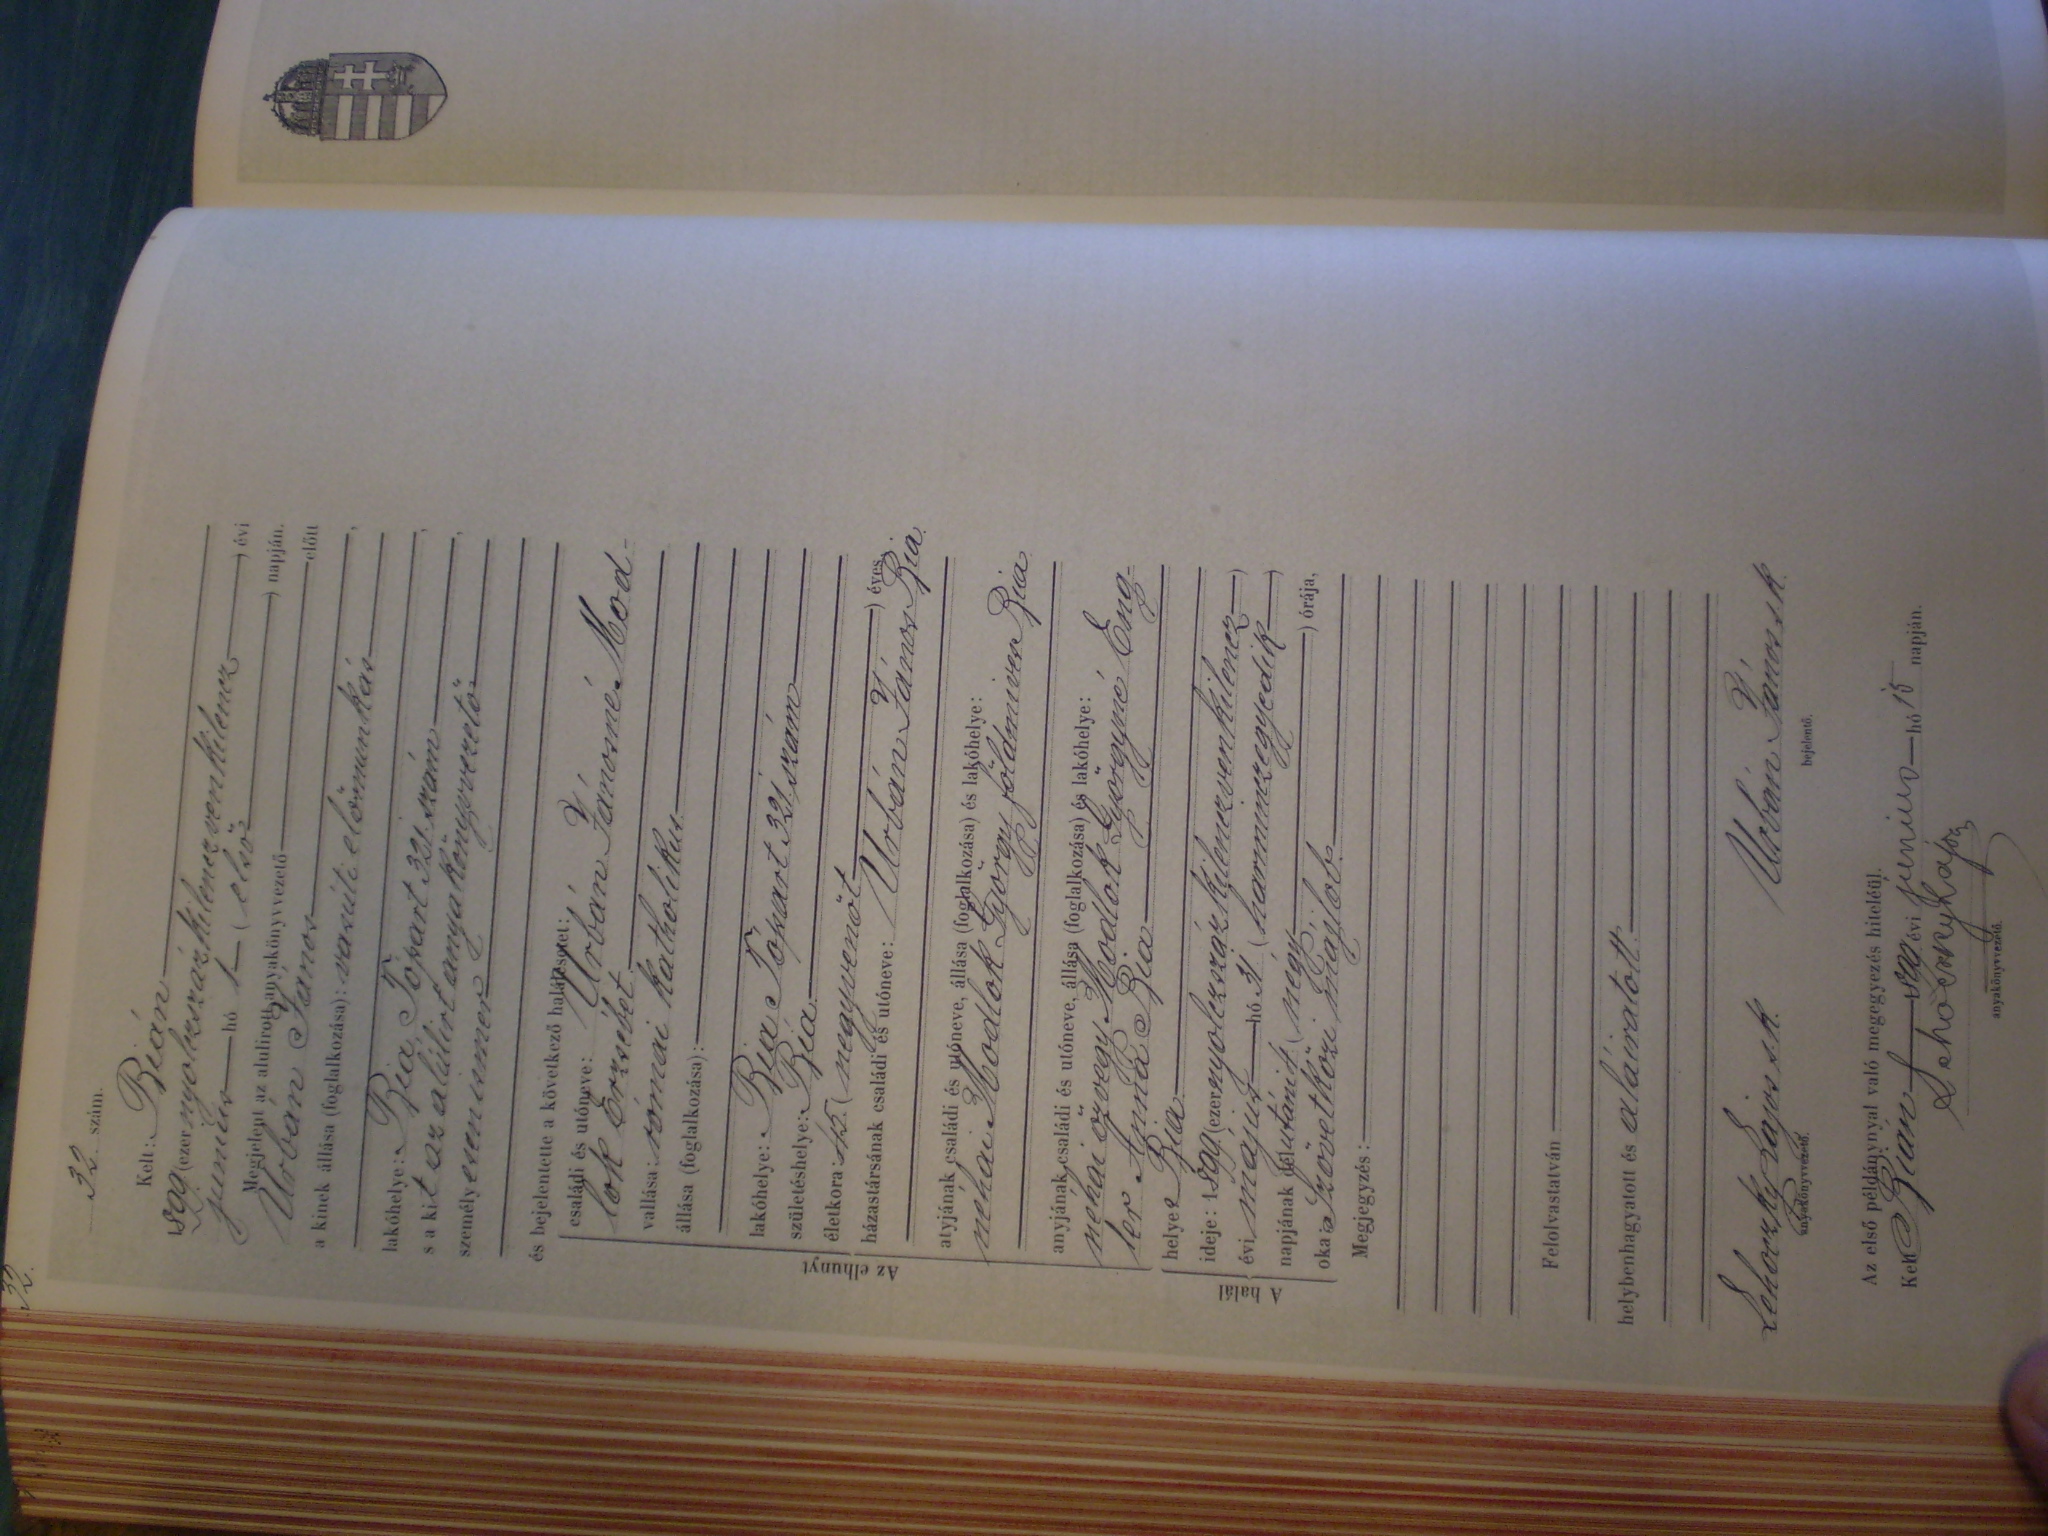 32.
32. szám.
Kelt: Bián
1899 (ezernyolczszázkilenczvenkilencz) évi
junius hó 1 (első) napján.
Megjelent az alulirott anyakönyvvezető előtt
Urbán János
a kinek állása (foglalkozása): vasúti előmunkás,
lakóhelye: Bia, Tópart 321. szám,
s a kit az alálirt anyakönyvvezető
személyesen ismer,
és bejelentette a következő halálesetet:
Az elhunyt
családi és utóneve: Urbán Jánosné Mod-
lok Erzsébet
vallása: római katholikus
állása (foglalkozása):
lakóhelye: Bia Tópart 321 szám
születéshelye: Bia
életkora: 45. (negyvenöt) éves,
házastársának családi és utóneve: Urbán János Bia.
atyjának családi és utóneve, állása (foglalkozása) és lakóhelye:
néhai Modlok György földmives Bia
anyjának családi és utóneve, állása (foglalkozása) és lakóhelye:
néhai özvegy Modlok Györgyné Eng-
ler Anna Bia
A halál
helye: Bia
ideje: 1899 (ezernyolczszázkilenczvenkilencz)
évi május hó 31 (harminczegyedik)
napjának délutáni 4 (négy) órája,
oka: Szövetközi májlob
Megjegyzés:
Felolvastatván
helybenhagyatott és aláiratott.
Lehoczky Lajos s.k. Urbán János s.k.
anyakönyvvezető. bejelentő.
Az első példánynyal való megegyezés hiteléül.
Kelt Bián 1899 évi junius hó 15 napján.
Lehoczky Lajos
anyakönyvvezető.